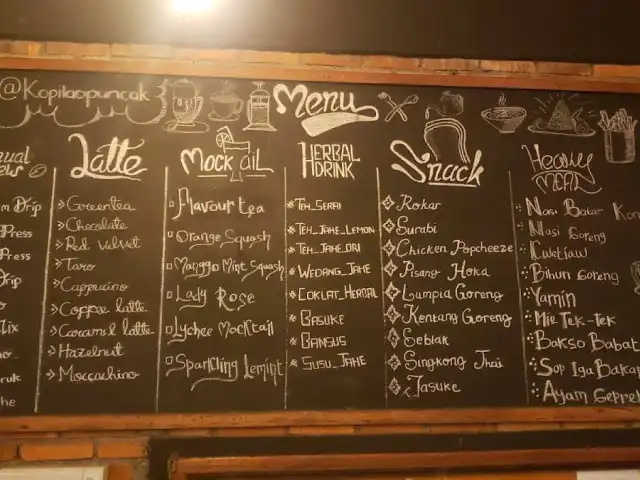 @Kopilaopuncak
Menu
ual
m Drip
Press
Press
Drip
Latte
Greentea
Chocolate
Red Velvet
Taro
Cappucino
Coppee latte
Caramel latte
Hazelnut
Moccachino
Mocktail
Flavour tea
Orange Squash
Mangga Mint Squash
Lady Rose
Lychee Mocktail
Sparkling Lemint
HERBAL
DRINK
TEH_SERAI
TEH_JAHE_LEMON
TEH_JAHE_ORI
WEDANG_JAHE
COKLAT_HERBAL
BASUKE
BANSUS
SUSU_JAHE
Snack
Rokar
Surabi
Chicken Popcheeze
Pisang Hoka
Lumpia Goreng
Kentang Goreng
Seblak
Singkong Thai
Jasuke
Heavy
MEAL
Nasi Bakar
Nasi Goreng
Kwetiaw
Bihun Goreng
Yamin
Mie Tek-Tek
Bakso Babat
Sop Iga Bakar
Ayam Geprek